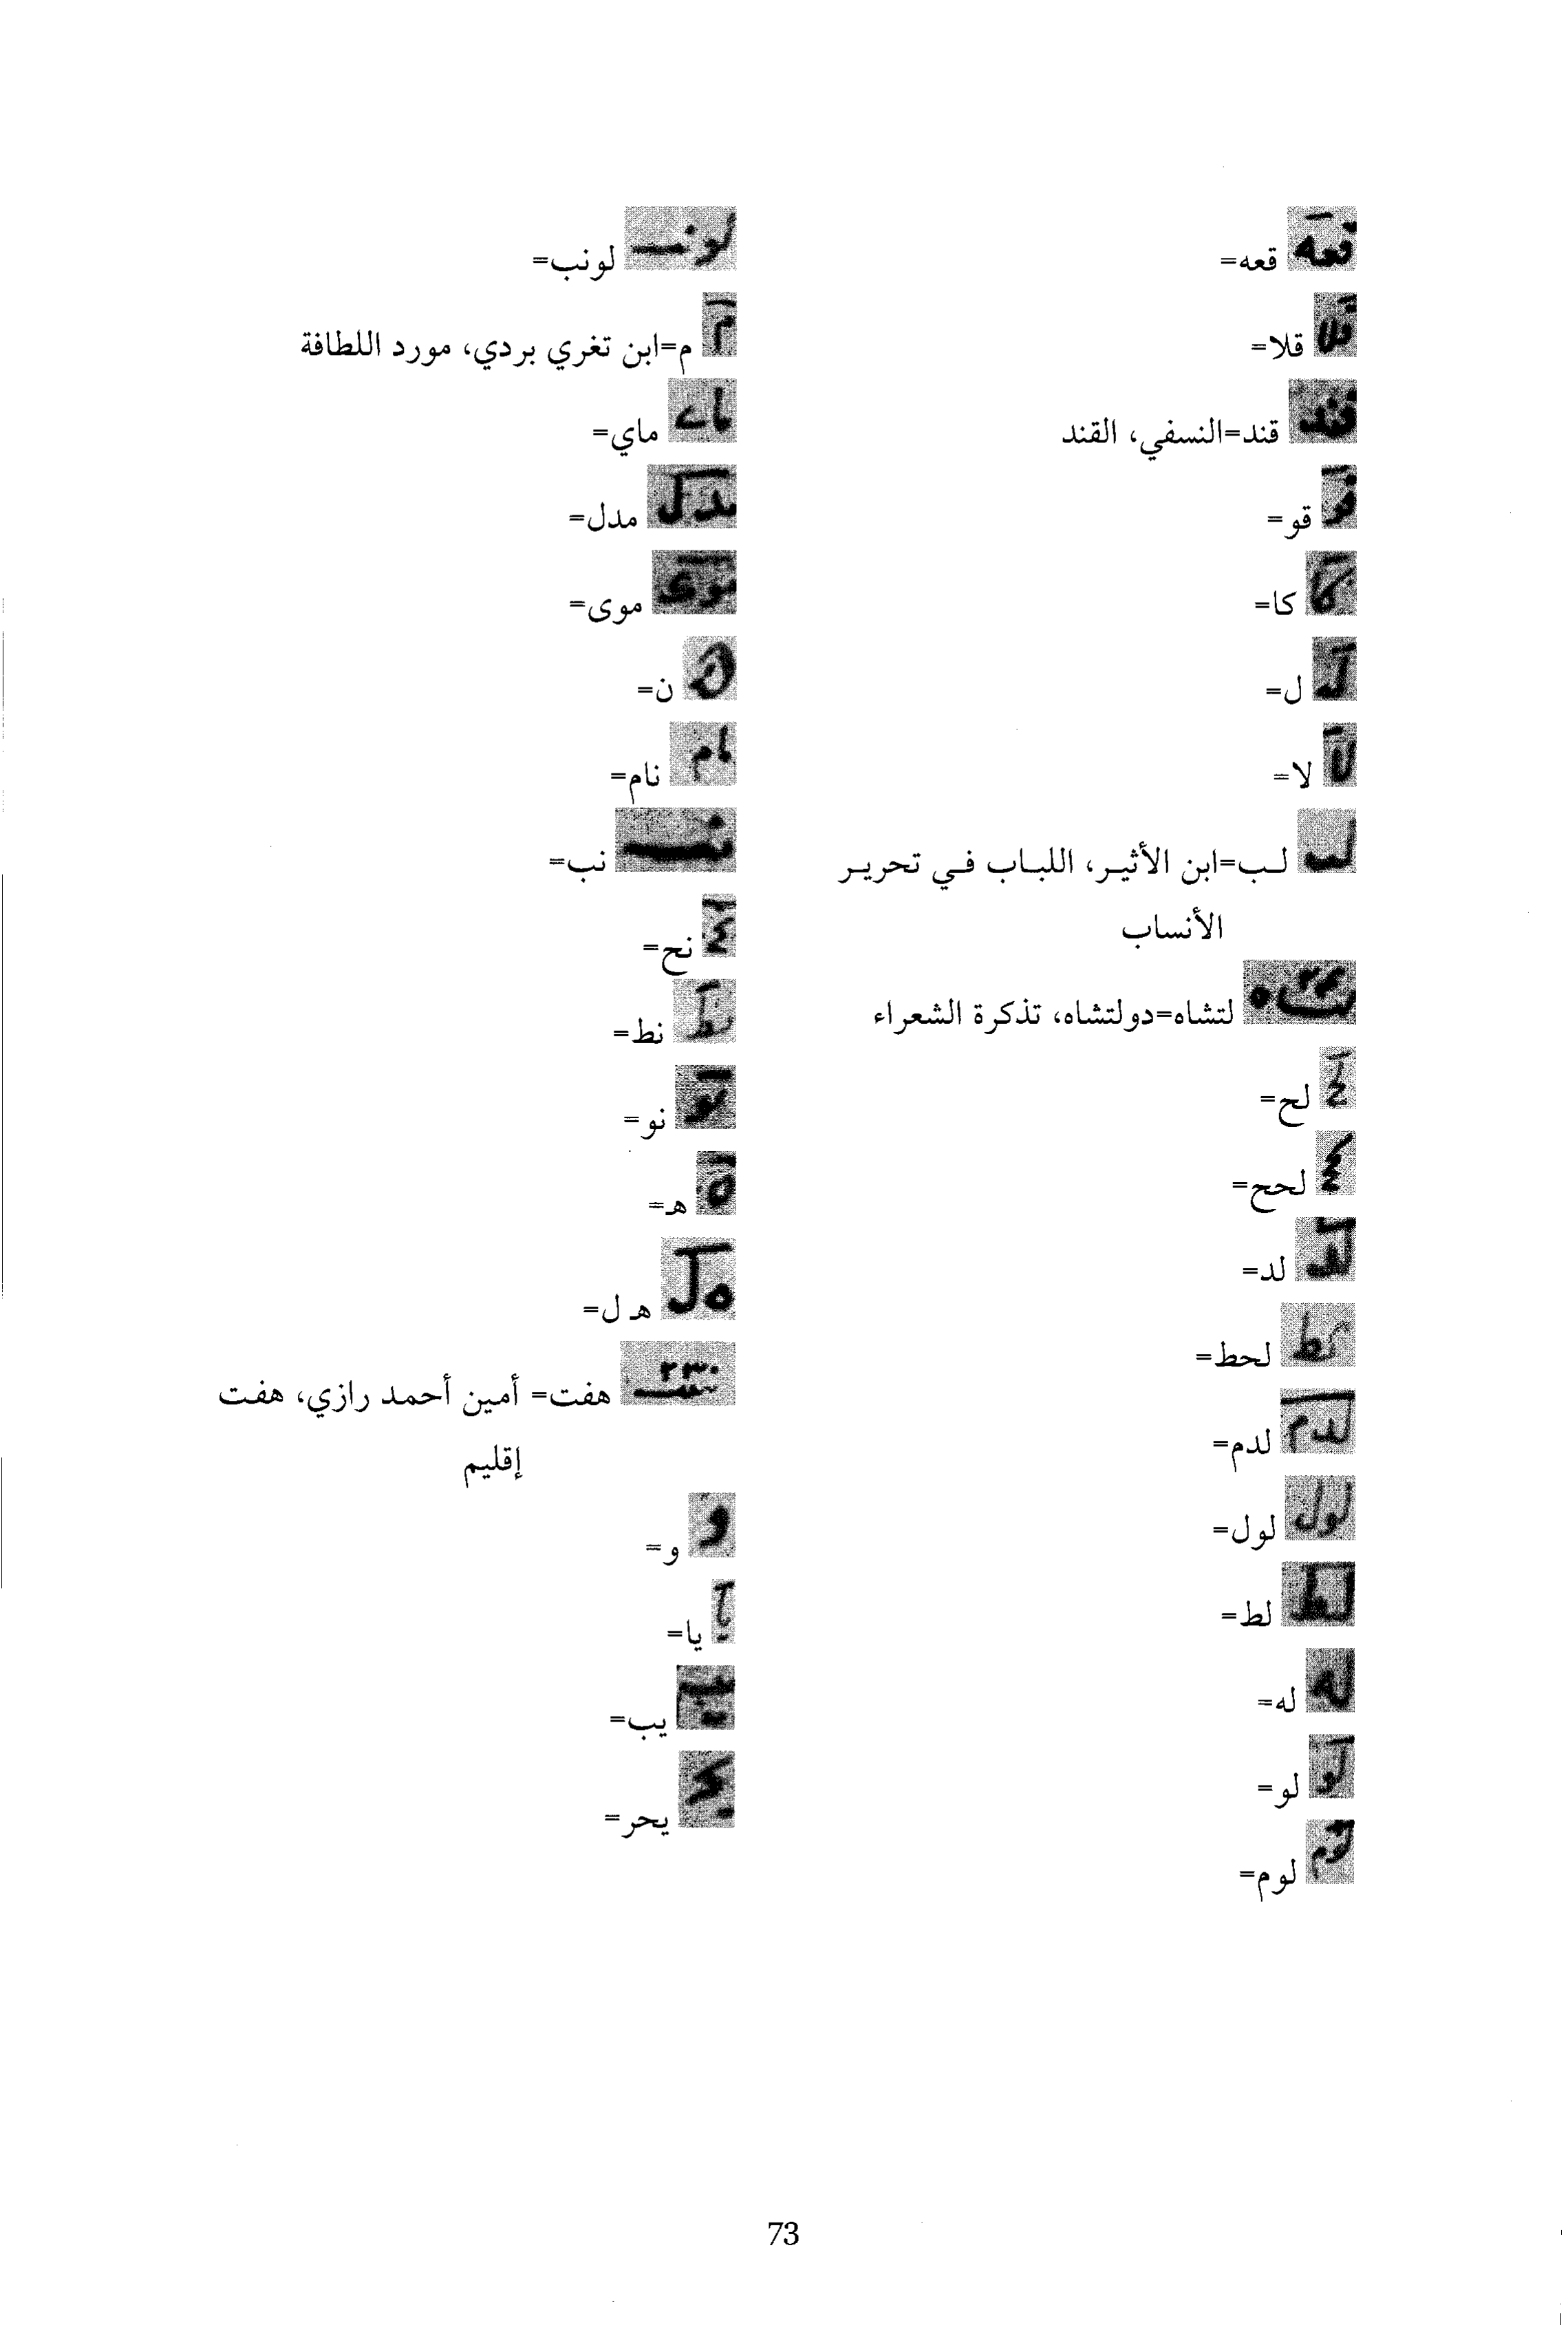 قعه=
قلا=
قند=النسفي، القند
قو=
كا=
ل=
لا=
لب=ابن الأثير، اللباب في تحرير
الأنساب
لتشاه=دولتشاه، تذكرة الشعراء
لح=
لحح=
لد=
لحط=
لدم=
لول=
لط=
له=
لو=
لوم=
لونب=
م=ابن تغري بردي، مورد اللطافة
ماي=
مدل=
موى=
ن=
نام=
نب=
نح=
نط=
نو=
هـ=
هـ ل=
هفت= أمين أحمد رازي، هفت
إقليم
و=
يا=
يب=
يحر=
73